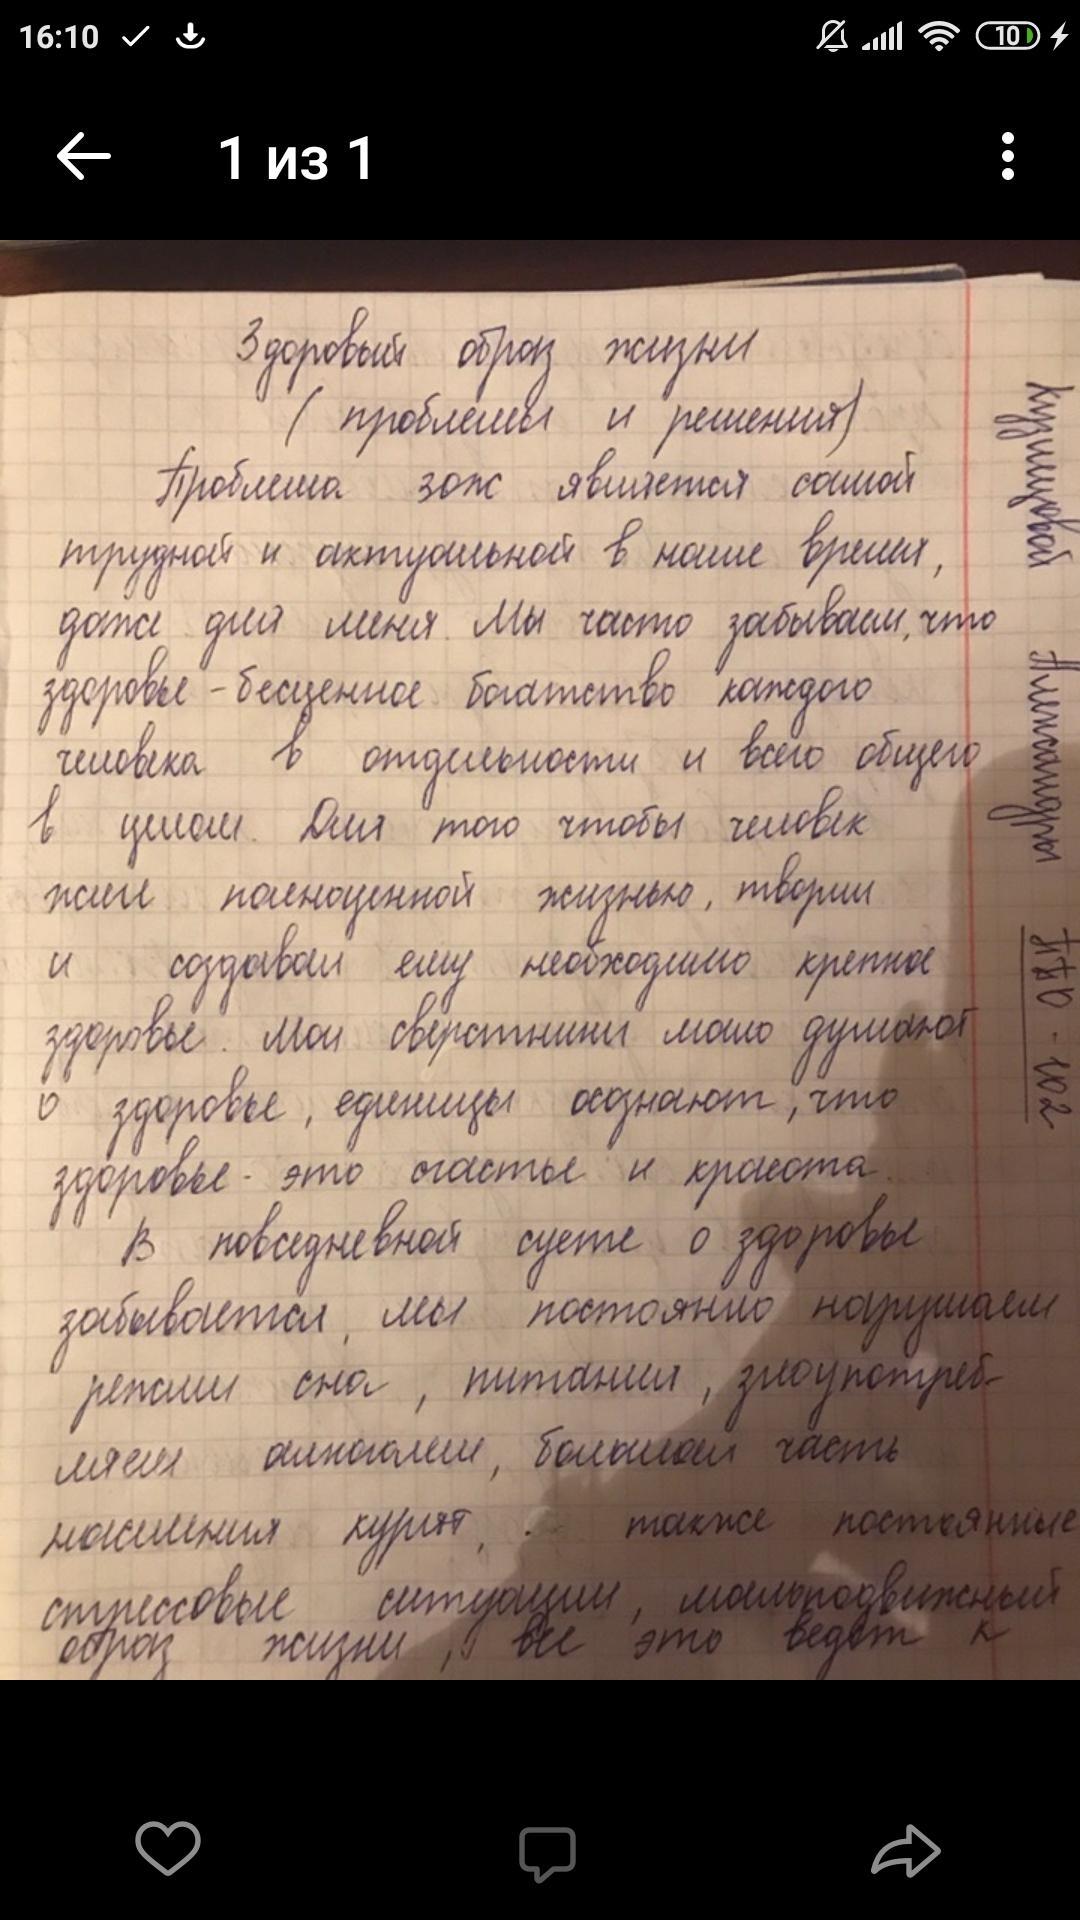 16:10
10
1 из 1
Здоровый образ жизни
( проблемы и решения)
Проблема зож является самой
трудной и актуальной в наше время,
даже для меня. Мы часто забываем, что
здоровье - бесценное богатство каждого
человека в отдельности и всего общего
в целом. Для того чтобы человек
жил полноценной жизнью, творил
и создавал ему необходимо крепкое
здоровье. Мои сверстники мало думают
о здоровье, единицы осознают, что
здоровье - это счастье и красота.
В повседневной суете о здоровье
забывается, мы постоянно нарушаем
режим сна, питания, злоупотреб-
ляем алкоголем, большая часть
населения курят, также постоянные
стрессовые ситуации, малоподвижный
образ жизни, все это ведет к
Александры
- 102